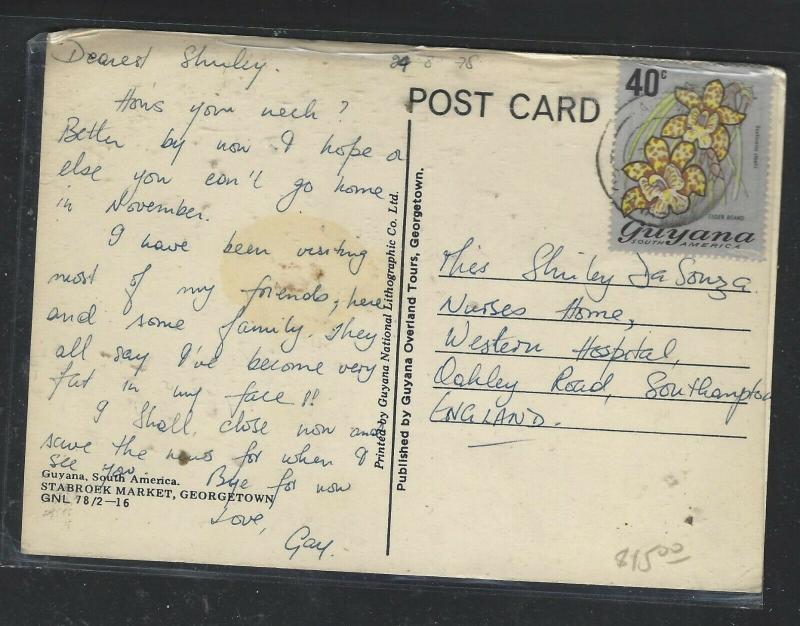 Dearest Shirley.
How's your neck?
Better by now I hope or
else you can't go home
in November.
I have been visiting
most of my friends, here
and some family. They
all say I've become very
fat in my face!!
I shall close now and
save the news for when I
see you. Bye for now
Love,
Gay.
Guyana, South America.
STABROEK MARKET, GEORGETOWN
GNL 78/2—16
Printed by Guyana National Lithographic Co. Ltd.
Published by Guyana Overland Tours, Georgetown.
POST CARD
40c
TIGER BEARD
Guyana
SOUTH AMERICA
Miss Shirley Da Souza
Nurses Home,
Western Hospital,
Oakley Road, Southampton
ENGLAND.
$15.00